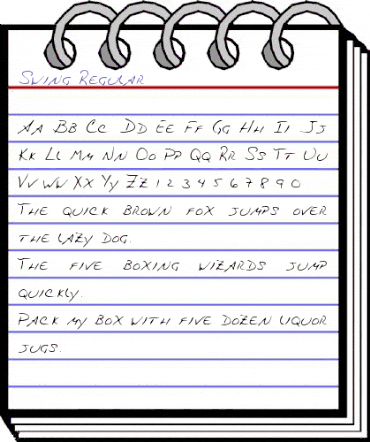 Swing Regular
Aa Bb Cc Dd Ee Ff Gg Hh Ii Jj
Kk Ll Mm Nn Oo Pp Qq Rr Ss Tt Uu
Vv Ww Xx Yy Zz 1 2 3 4 5 6 7 8 9 0
The quick brown fox jumps over
the lazy dog.
The five boxing wizards jump
quickly.
Pack my box with five dozen liquor
jugs.